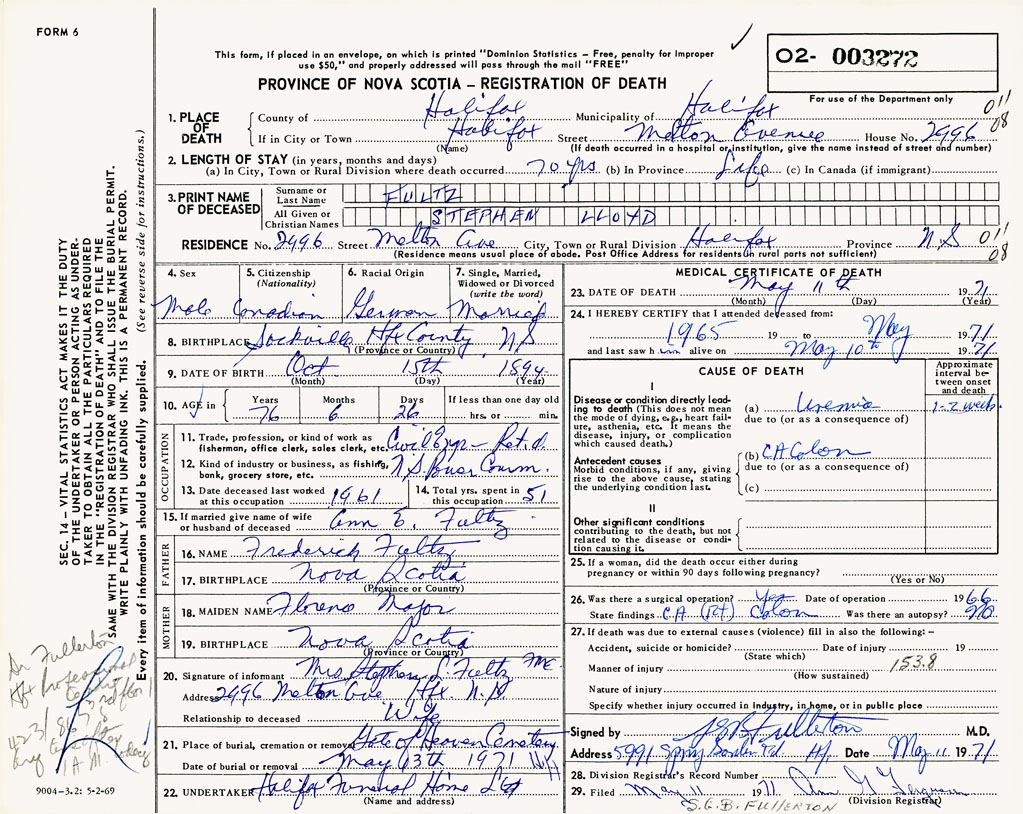 FORM 6
This form, if placed in an envelope, on which is printed "Dominion Statistics – Free, penalty for improper
use $50," and properly addressed will pass through the mail "FREE"
O2- 003272
For use of the Department only
PROVINCE OF NOVA SCOTIA – REGISTRATION OF DEATH
011
08
1. PLACE OF DEATH
County of Halifax Municipality of Halifax
If in City or Town Halifax Street Melton Avenue House No. 2996
(Name) (If death occurred in a hospital or institution, give the name instead of street and number)
2. LENGTH OF STAY (in years, months and days)
(a) In City, Town or Rural Division where death occurred 70 yrs (b) In Province Life (c) In Canada (if immigrant)
3. PRINT NAME OF DECEASED
Surname or Last Name FULTZ
All Given or Christian Names STEPHEN LLOYD
RESIDENCE No. 2996 Street Melton Ave City, Town or Rural Division Halifax Province N.S
(Residence means usual place of abode. Post Office Address for residents in rural parts not sufficient)
011
08
4. Sex
Male
5. Citizenship (Nationality)
Canadian
6. Racial Origin
German
7. Single, Married, Widowed or Divorced (write the word)
Married
8. BIRTHPLACE Sackville Hfx County, N.S
(Province or Country)
9. DATE OF BIRTH Oct 15th 1894
(Month) (Day) (Year)
10. AGE in Years Months Days If less than one day old
76 6 26 hrs. or min.
OCCUPATION
11. Trade, profession, or kind of work as
fisherman, office clerk, sales clerk, etc. Civil Engr – Ret.d.
12. Kind of industry or business, as fishing,
bank, grocery store, etc. N.S. Power Comm.
13. Date deceased last worked
at this occupation 1961
14. Total yrs. spent in
this occupation 51
15. If married give name of wife
or husband of deceased Ann E. Fultz
FATHER
16. NAME Frederick Fultz
17. BIRTHPLACE Nova Scotia
(Province or Country)
MOTHER
18. MAIDEN NAME Florence Major
19. BIRTHPLACE Nova Scotia
(Province or Country)
20. Signature of informant Mrs Stephen L. Fultz
Address 2996 Melton Ave Hfx. N.S
Relationship to deceased Wife
21. Place of burial, cremation or removal Gate of Heaven Cemetery
Date of burial or removal May 13th 1971
22. UNDERTAKER Halifax Funeral Home Ltd
(Name and address)
MEDICAL CERTIFICATE OF DEATH
23. DATE OF DEATH May 11th 1971
(Month) (Day) (Year)
24. I HEREBY CERTIFY that I attended deceased from:
1965 19 to May 1971
and last saw him alive on May 10th 1971
CAUSE OF DEATH
Approximate interval between onset and death
I
Disease or condition directly leading to death (This does not mean the mode of dying, e.g., heart failure, asthenia, etc. It means the disease, injury, or complication which caused death.)
(a) Uremia 1-2 weeks
due to (or as a consequence of)
Antecedent causes
Morbid conditions, if any, giving rise to the above cause, stating the underlying condition last.
(b) CA Colon
due to (or as a consequence of)
(c)
II
Other significant conditions
contributing to the death, but not related to the disease or condition causing it.
25. If a woman, did the death occur either during
pregnancy or within 90 days following pregnancy?
(Yes or No)
26. Was there a surgical operation? Yes Date of operation 1966
State findings CA (Rt) Colon Was there an autopsy? No
27. If death was due to external causes (violence) fill in also the following: –
Accident, suicide or homicide? Date of injury 19
(State which)
Manner of injury 153.8
(How sustained)
Nature of injury
Specify whether injury occurred in industry, in home, or in public place
Signed by SGB Fullerton M.D.
Address 5991 Spring Garden Rd. Hfx Date May 11 1971
28. Division Registrar's Record Number
29. Filed May 11 1971 Ann G Ferguson
(Division Registrar)
S.G.B. FULLERTON
SEC. 14 – VITAL STATISTICS ACT MAKES IT THE DUTY
OF THE UNDERTAKER OR PERSON ACTING AS UNDERTAKER TO OBTAIN ALL THE PARTICULARS REQUIRED
IN THE "REGISTRATION OF DEATH" AND TO FILE THE
SAME WITH THE DIVISION REGISTRAR WHO SHALL ISSUE THE BURIAL PERMIT.
WRITE PLAINLY WITH UNFADING INK. THIS IS A PERMANENT RECORD.
Every item of information should be carefully supplied. (See reverse side for instructions.)
Dr Fullerton
Hfx Professional
3rd floor
9004-3.2: 5-2-69